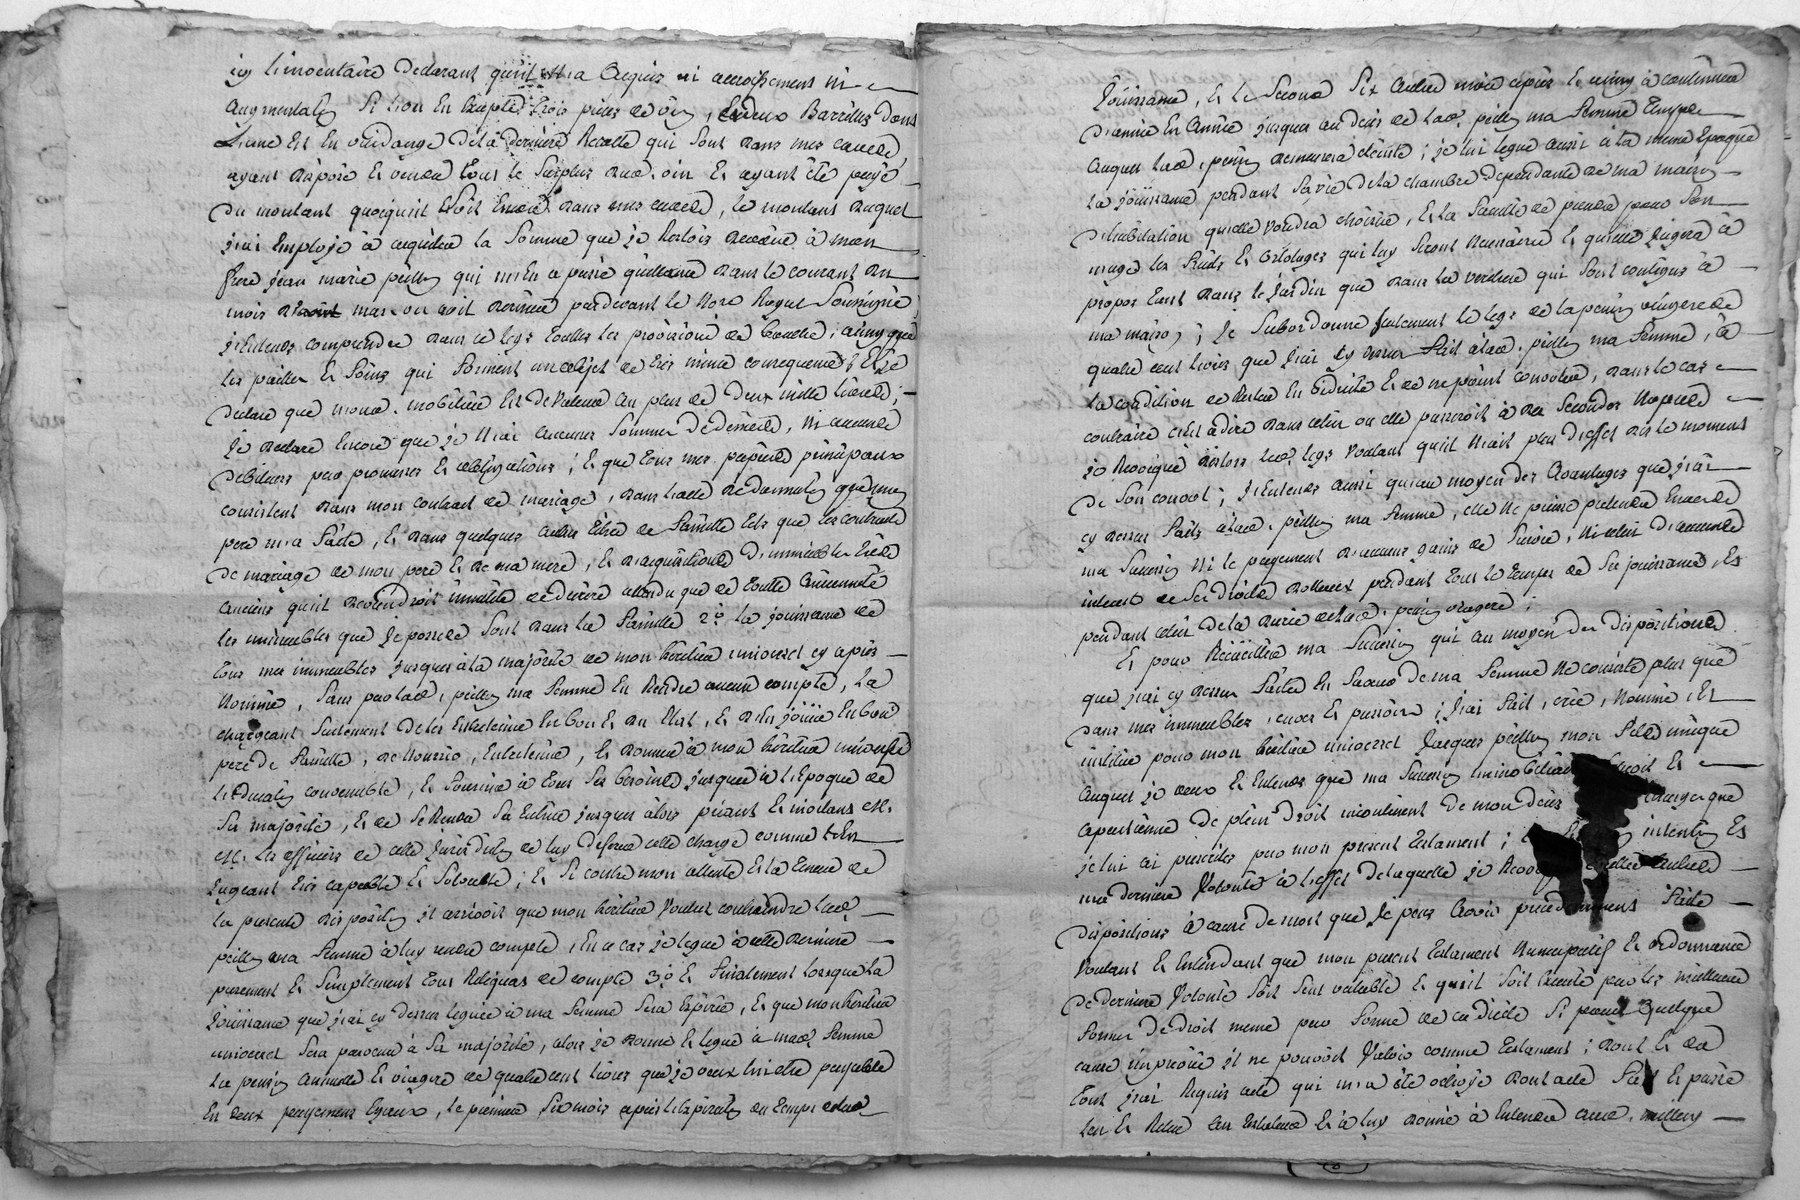 l'inventaire declarant qu'il n'y a acquis ni accroissement ni
augmentation si l'on en excepte trois pieces de vin, et deux Barrilles dont
l'une est en vuidange de la derniere Recolte qui sont dans mes caves
ayant disposé et vendu tout le surplus dud. vin et ayant été payé
du montant quoiqu'il soit encore dans mes caves, le montant duquel
j'ai employé à acquitter la somme que je Restois devoir à mon
frere jean marie peillon qui m'en a passé quittance dans le courant du
mois de mars ou avril dernier pardevant le No.re Royal Soussigné
j'entends comprendre dans le legs toutes les provisions de bouche, ainsy que
les pailles et foins qui forment un objet de très mince consequence, et je
declare que mond. mobilier est de valeur au plus de deux mille livres;
Je declare encore que je n'ai aucunes sommes de deniers, ni aucuns
debiteurs par promesses et obligations; et que tous mes papiers principaux
consistent dans mon contract de mariage, dans l'acte de donnation que mon
pere m'a faite, et dans quelques autres titres de famille tels que les contracts
de mariage de mon pere et de ma mere, et d'acquisitions d'immeubles très
anciens qu'il deviendroit inutile de decrire attendu que de toutte ancienneté
les immeubles que je possede sont dans la famille 2° la jouissance de
tous mes immeubles jusques à la majorité de mon heritier universel cy après
nommé, sans par lad. peillon ma femme en Rendre aucun compte, la
chargeant seulement de les entretenir en bon et dû etat, et d'en jouir en bon
pere de famille, de nourrir, entretenir, et donner à mon heritier universel
l'education convenable, et fournir à tous ses besoins jusques à l'epoque de
sa majorité, et de se Rendre sa tutrice jusques alors priant et invitant M.
M. les officiers de cette jurisdiction de luy deferer cette charge comme l'en
jugeant très capable et solvable; et si contre mon attente et la teneur de
la presente disposition il arrivoit que mon heritier voulut contraindre lad.
peillon ma femme à luy rendre compte, en ce cas je legue à cette derniere
purement et simplement tous Reliquas de compte 3° et finalement lorsque la
jouissance que j'ai cy dessus leguée à ma femme sera expirée, et que mon heritier
universel sera parvenu à sa majorité, alors je donne et legue à mad. femme
la pension annuelle et viagere de quatre cent livres que je veux lui etre payable
en deux payemens egaux, le premier six mois après l'expiration du temps de lad.
jouissance, et le second six autres mois après et ainsy à continuer
d'année en année jusques au deces de lad. peillon ma femme temps
auquel lad. pension demeurera eteinte; je lui legue aussi à la même epoque
la jouissance pendant sa vie de la chambre dependante de ma maison
d'habitation qu'elle voudra choisir, et la faculté de prendre pour son
usage les fruits et ortolages qui luy seront necessaires et qu'elle jugera à
propos tant dans le jardin que dans la verchere qui sont contigus à
ma maison; je subordonne seulement le legs de la pension viagere de
quatre cent livres que j'ai cy dessus fait à lad. peillon ma femme, à
la condition de Rester en viduité et de ne point convoler, dans le cas
contraire c'est à dire dans celui ou elle passeroit à de secondes nopces
je Revoque dès lors led. legs voulant qu'il n'ait plus d'effet dès le moment
de son convol; j'entends aussi qu'au moyen des avantages que j'ai
cy dessus faits à lad. peillon ma femme, elle ne puisse pretendre envers
ma succession ni le payement d'aucuns gains de survie, ni celui d'aucuns
interets de ses droits dotteaux pendant tout le temps de sa jouissance, et
pendant celui de la durée de lad. pension viagere;
Et pour Recueillir ma succession qui au moyen des dispositions
que j'ai cy dessus faites en faveur de ma femme ne consiste plus que
dans mes immeubles, j'ai fait, créé, nommé et
institué pour mon heritier universel Jacques peillon mon fils unique
auquel je veux et entends que ma succession immobiliaire
appartienne de plein droit incontinent de mon deces charges que
je lui ai prescrites par mon present testament; intention et
ma derniere volonté à l'effet de laquelle je Revoque toutes autres
dispositions à cause de mort que je peux avoir precedemment faite
voulant et entendant que mon present testament nuncupatif et ordonnance
de derniere volonté soit seul valable et qu'il soit executé par les meilleures
formes de droit meme par forme de codicile si pour quelque
cause imprévüe il ne pouvoit valoir comme testament; dont et de
tout j'ai Requis acte qui m'a été octroyé dont acte fait et passé
leu et Releu au testateur et à luy donné à entendre aud. millery